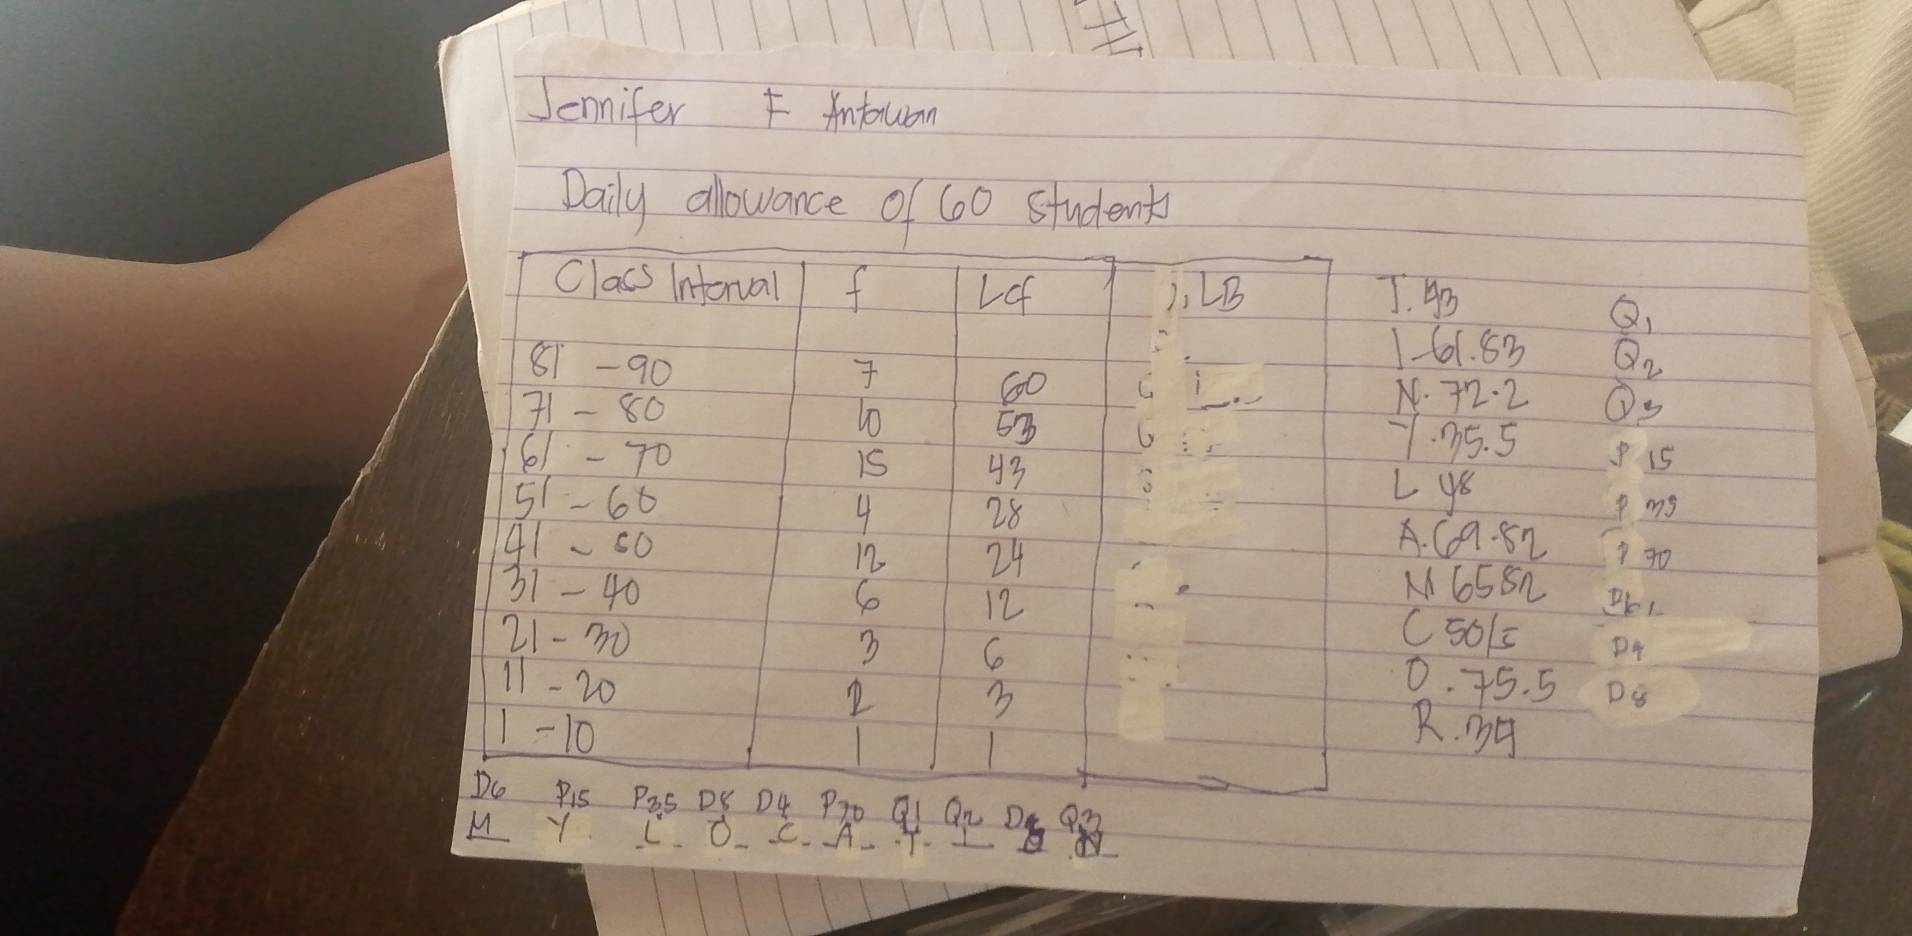 Jennifer F Antawan
Daily allowance of 60 students
Class Interval f Lcf LB
81 - 90 7 60
71 - 80 10 53
61 - 70 15 43
51 - 60 4 28
41 - 50 12 24
31 - 40 6 12
21 - 30 3 6
11 - 20 2 3
1 - 10 1 1
T. 43 Q1
I - 61.83 Q2
N. 72.2 Q3
Y. 35.5 P 15
L 48 P 35
A. 69.82 P 70
M 6582
C 50 D4
O. 75.5 D8
R. 34
D6 P15 P35 D8 D4 P70 Q1 Q2 D8 Q3
M Y L O C A T I O N